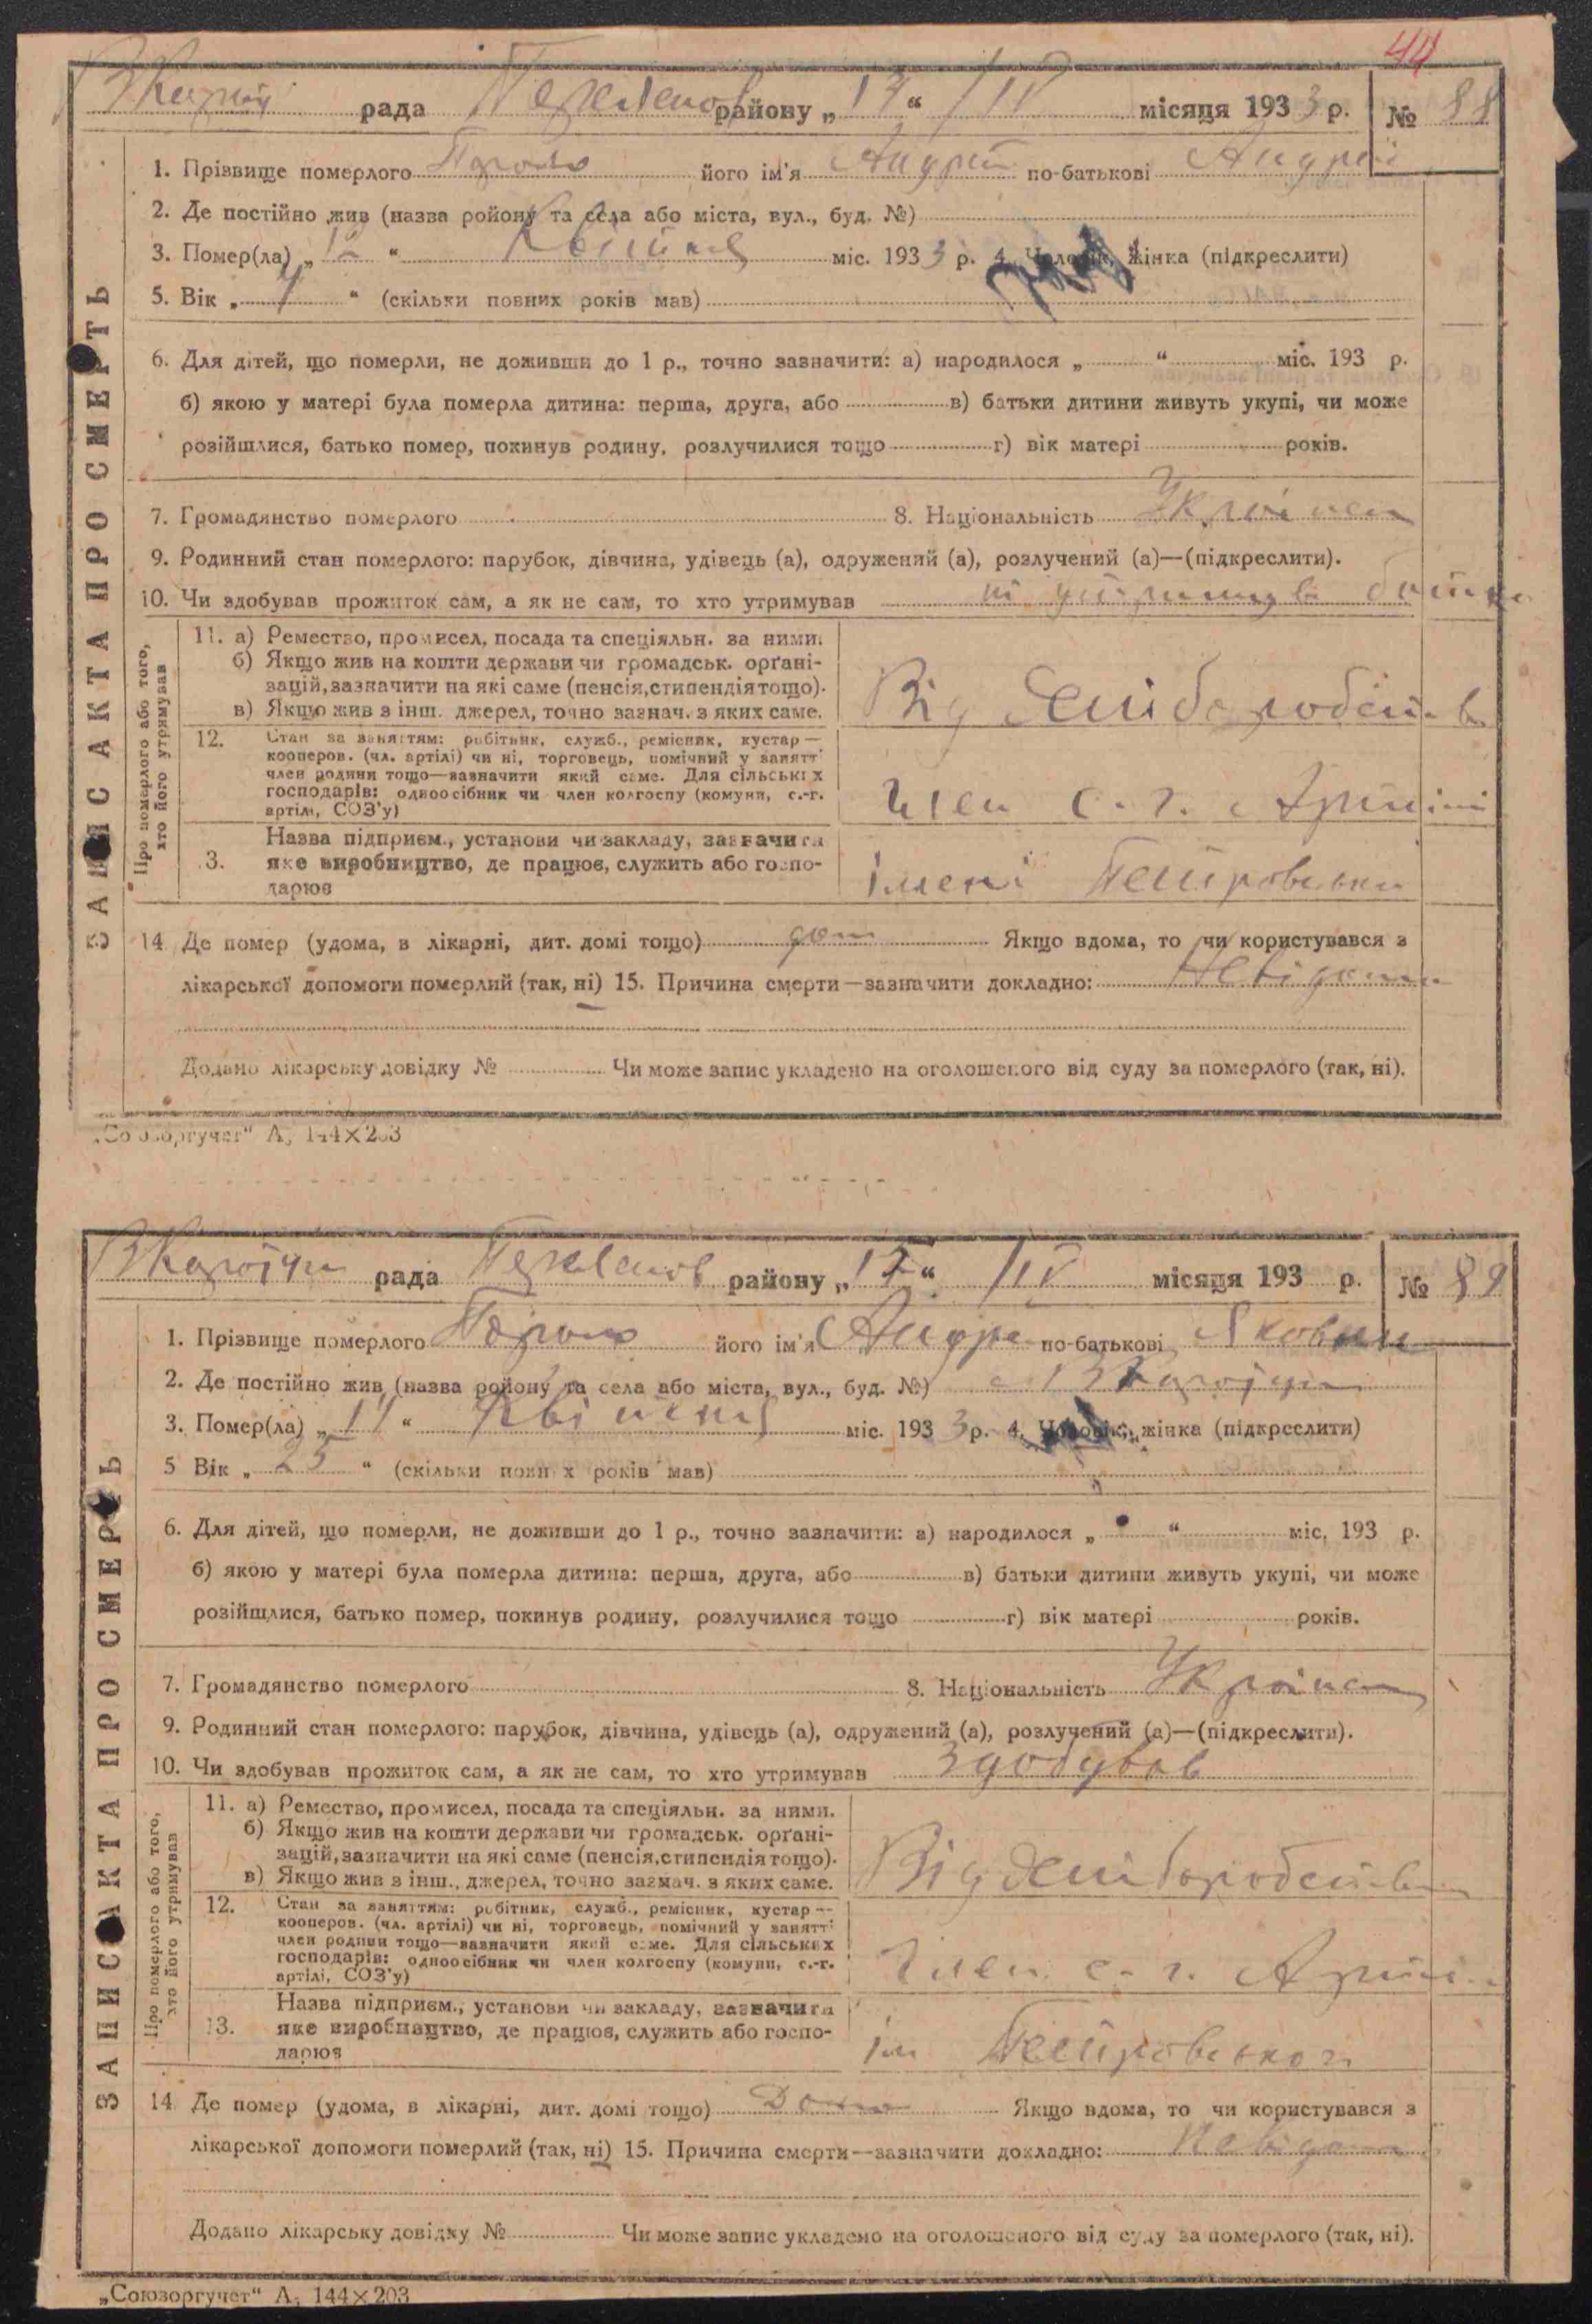 44
рада району „17“ IV місяця 1933 р. № 88
1. Прізвище померлого його ім'я Андрій по-батькові Андрій
2. Де постійно жив (назва ройону та села або міста, вул., буд. №)
3. Помер(ла) „12“ Квітня міс. 1933 р. 4. Чоловік, жінка (підкреслити)
5. Вік „ “ (скільки повних років мав)
6. Для дітей, що померли, не доживши до 1 р., точно зазначити: а) народилося „ “ міс. 193 р.
б) якою у матері була померла дитина: перша, друга, або в) батьки дитини живуть укупі, чи може
розійшлися, батько помер, покинув родину, розлучилися тощо г) вік матері років.
7. Громадянство померлого 8. Національність Україн
9. Родинний стан померлого: парубок, дівчина, удівець (а), одружений (а), розлучений (а)—(підкреслити).
10. Чи здобував прожиток сам, а як не сам, то хто утримував
ЗАПИС АКТА ПРО СМЕРТЬ
Про померлого або того, хто його утримував
11. а) Ремество, промисел, посада та спеціяльн. за ними.
б) Якщо жив на кошти держави чи громадськ. орґані-
зацій, зазначити на які саме (пенсія, стипендія тощо).
в) Якщо жив з інш. джерел, точно зазнач. з яких саме.
Від
12. Стан за заняттям: робітник, служб., ремісник, кустар —
кооперов. (чл. артілі) чи ні, торговець, помічний у занятт
член родини тощо—зазначити який саме. Для сільських
господарів: одноосібник чи член колгоспу (комуни, с.-г.
артілі, СОЗ'у)
Член с. г. Артілі
13. Назва підприєм., установи чи закладу, зазначити
яке виробництво, де працює, служить або госпо-
дарює
імені Петровськ
14 Де помер (удома, в лікарні, дит. домі тощо) дома Якщо вдома, то чи користувався з
лікарської допомоги померлий (так, ні) 15. Причина смерти—зазначити докладно: Невідома
Додано лікарську довідку № Чи може запис укладено на оголошеного від суду за померлого (так, ні).
„Союзоргучет“ А5 144×203
рада району „17“ IV місяця 193 р. № 89
1. Прізвище померлого його ім'я Андрі по-батькові Якович
2. Де постійно жив (назва ройону та села або міста, вул., буд. №)
3. Помер(ла) „11“ Квітня міс. 1933 р. 4. Чоловік, жінка (підкреслити)
5 Вік „25“ (скільки повних років мав)
6. Для дітей, що померли, не доживши до 1 р., точно зазначити: а) народилося „ “ міс. 193 р.
б) якою у матері була померла дитина: перша, друга, або в) батьки дитини живуть укупі, чи може
розійшлися, батько помер, покинув родину, розлучилися тощо г) вік матері років.
7. Громадянство померлого 8. Національність Україн
9. Родинний стан померлого: парубок, дівчина, удівець (а), одружений (а), розлучений (а)—(підкреслити).
10. Чи здобував прожиток сам, а як не сам, то хто утримував здобував
ЗАПИС АКТА ПРО СМЕРТЬ
Про померлого або того, хто його утримував
11. а) Ремество, промисел, посада та спеціяльн. за ними.
б) Якщо жив на кошти держави чи громадськ. орґані-
зацій, зазначити на які саме (пенсія, стипендія тощо).
в) Якщо жив з інш., джерел, точно зазнач. з яких саме.
Від
12. Стан за заняттям: робітник, служб., ремісник, кустар —
кооперов. (чл. артілі) чи ні, торговець, помічний у занятт
член родини тощо—зазначити який саме. Для сільських
господарів: одноосібник чи член колгоспу (комуни, с.-г.
артілі, СОЗ'у)
Член с. г. Артілі
13. Назва підприєм., установи чи закладу, зазначити
яке виробництво, де працює, служить або госпо-
дарює
ім Петровського
14 Де помер (удома, в лікарні, дит. домі тощо) Дома Якщо вдома, то чи користувався з
лікарської допомоги померлий (так, ні) 15. Причина смерти—зазначити докладно: Невідома
Додано лікарську довідку № Чи може запис укладено на оголошеного від суду за померлого (так, ні).
„Союзоргучет“ А5 144×203